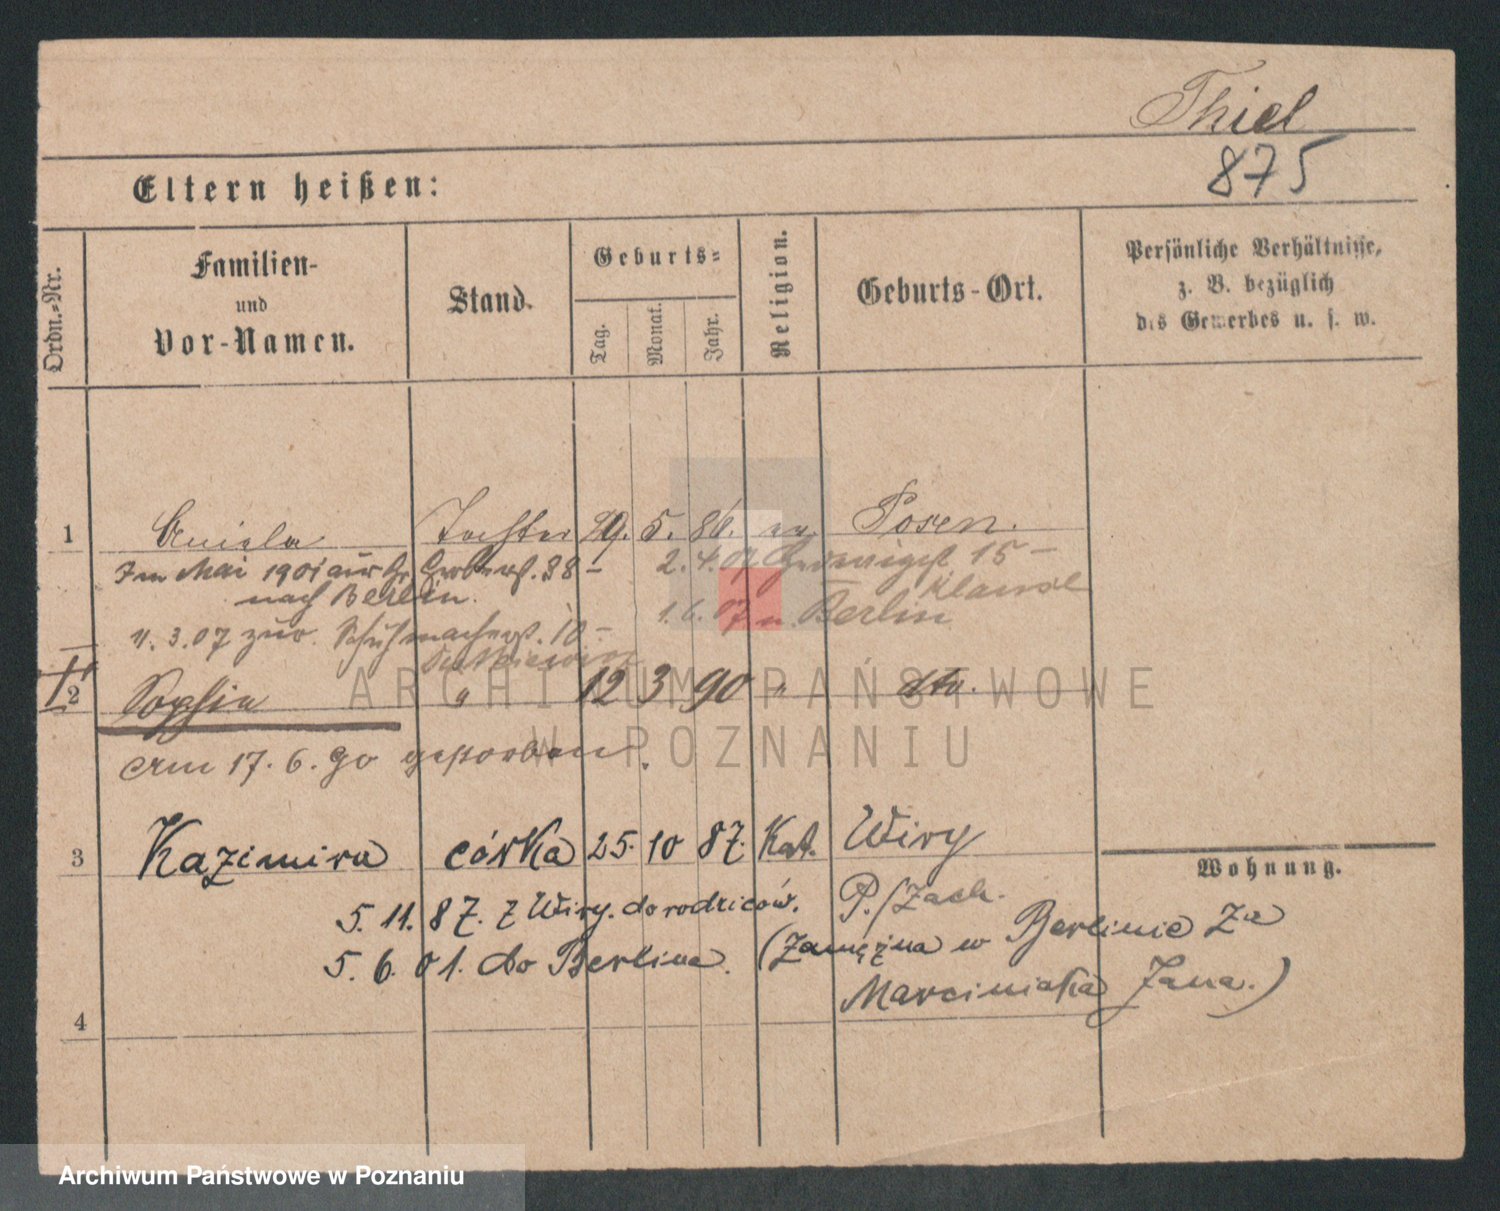 Thiel
875
Eltern heißen:
Ordn.-Nr.
Familien-
und
Vor-Namen.
Stand.
Geburts-
Tag.
Monat.
Jahr.
Religion.
Geburts-Ort.
Persönliche Verhältnisse,
z. B. bezüglich
des Gewerbes u. s. w.
1 Aniela Tochter 29. 5. 86. Posen.
Im Mai 1901 aus Gr. Gerberst. 38 –
nach Berlin.
2. 4. 07 15 –
1. 6. 07 n. Berlin
11. 3. 07 zur. Schuhmacherst. 10 –
2 Sophia " 12 3 90 " dto.
Am 17. 6. 90 gestorben.
3 Kazimira córka 25. 10 87. Kat. Wiry
P./Zach.
5. 11. 87. z Wiry. do rodziców.
5. 6. 01. do Berlina. (Zamężna w Berlinie za
Marciniaka Jana.)
Wohnung.
4
ARCHIWUM PAŃSTWOWE
W POZNANIU
Archiwum Państwowe w Poznaniu